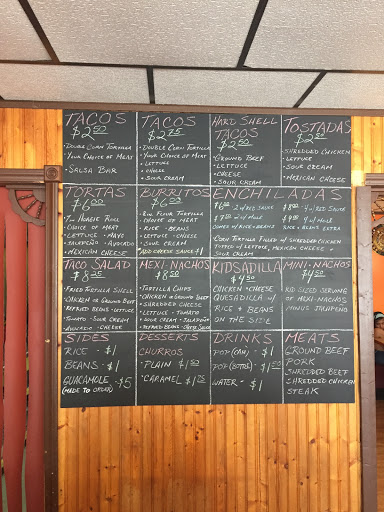 TACOS
$2.50
• DOUBLE CORN TORTILLA
• YOUR CHOICE OF MEAT
• SALSA BAR
TACOS
$2.75
• DOUBLE CORN TORTILLA
• YOUR CHOICE OF MEAT
• LETTUCE
• CHEESE
• SOUR CREAM
HARD SHELL
TACOS
$2.50
• GROUND BEEF
• LETTUCE
• CHEESE
• SOUR CREAM
TOSTADAS
$2.50
• SHREDDED CHICKEN
• LETTUCE
• SOUR CREAM
• MEXICAN CHEESE
TORTAS
$6.00
• 7 in HOAGIE ROLL
CHOICE OF MEAT
• LETTUCE • MAYO
• JALAPEÑO • AVOCADO
• MEXICAN CHEESE
BURRITOS
$6.00
• BIG FLOUR TORTILLA
• CHOICE OF MEAT
• RICE • BEANS
• LETTUCE • CHEESE
• SOUR CREAM
• ADD CHEESE SAUCE $1
ENCHILADAS
COMES w/ RICE + BEANS
RICE + BEANS EXTRA
CORN TORTILLA FILLED w/ SHREDDED CHICKEN
TOPPED w/ LETTUCE, MEXICAN CHEESE &
SOUR CREAM
TACO SALAD
$8.00
• FRIED TORTILLA SHELL
CHICKEN OR GROUND BEEF
• REFRIED BEANS • LETTUCE
• TOMATO • SOUR CREAM
AVOCADO • CHEESE
MEXI-NACHOS
$8.25
• TORTILLA CHIPS
• CHICKEN OR GROUND BEEF
• SHREDDED CHEESE
• LETTUCE • TOMATO
• SOUR CREAM • JALAPEÑO
• REFRIED BEANS
KIDSADILLA
$4.50
CHICKEN + CHEESE
QUESADILLA w/
RICE + BEANS
ON THE SIDE
MINI-NACHOS
$4.50
KID SIZED SERVING
OF MEXI-NACHOS
MINUS JALAPEÑO
SIDES
RICE - $1
BEANS - $1
GUACAMOLE - $5
(MADE TO ORDER)
DESSERTS
CHURROS
• PLAIN $1.50
• CARAMEL $1.75
DRINKS
POP (CAN) - $1
POP (BOTTLE)
WATER - $1
MEATS
GROUND BEEF
PORK
SHREDDED BEEF
SHREDDED CHICKEN
STEAK